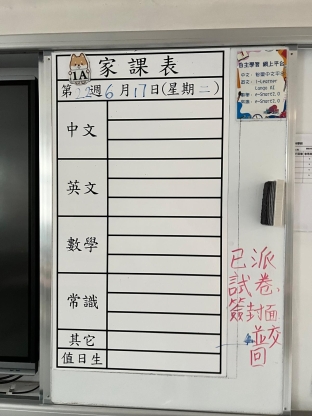 1A 家課表
第22週6月17日(星期二)
中文
英文
數學
常識
其它
值日生
自主學習 網上平台
i-Learner
e-Smart2.0
e-Smart2.0
已派
試卷,
簽封面
並交
回